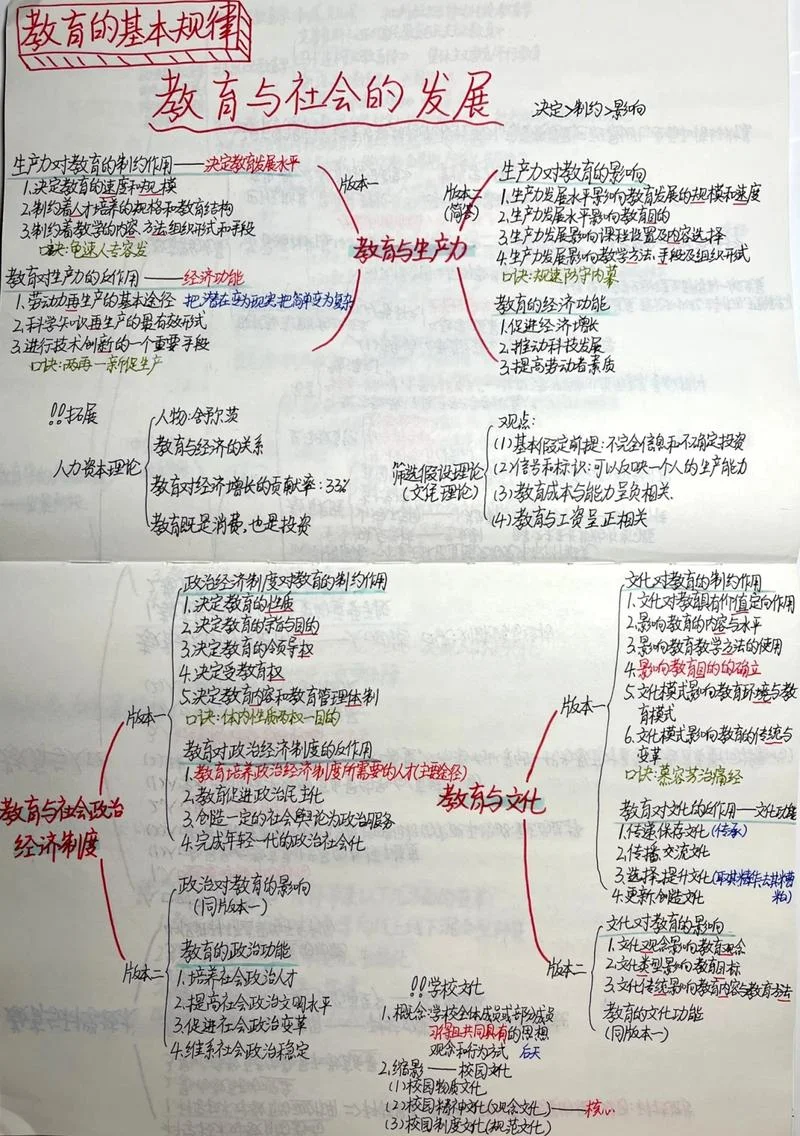 教育的基本规律
教育与社会的发展
决定>制约>影响
教育与生产力
版本一
生产力对教育的制约作用——决定教育发展水平
1.决定教育的速度和规模
2.制约着人才培养的规格和教育结构
3.制约着教学的内容、方法、组织形式和手段
口诀:龟速人专容发
教育对生产力的反作用——经济功能
1.劳动力再生产的基本途径 把潜在变为现实,把简单变为复杂
2.科学知识再生产的最有效形式
3.进行技术创新的一个重要手段
口诀:两再一新促生产
版本二
(简答)
生产力对教育的影响
1.生产力发展水平影响教育发展的规模和速度
2.生产力发展水平影响教育目的
3.生产力发展影响课程设置及内容选择
4.生产力发展影响教学方法、手段及组织形式
口诀:规速防守内幕
教育的经济功能
1.促进经济增长
2.推动科技发展
3.提高劳动者素质
!!拓展
人力资本理论
人物:舒尔茨
教育与经济的关系
教育对经济增长的贡献率:33%
教育既是消费,也是投资
筛选假设理论
(文凭理论)
观点:
(1)基本假定前提:不完全信息和不确定投资
(2)信号和标识:可以反映一个人的生产能力
(3)教育成本与能力呈负相关
(4)教育与工资呈正相关
教育与社会政治
经济制度
版本一
政治经济制度对教育的制约作用
1.决定教育的性质
2.决定教育的宗旨与目的
3.决定教育的领导权
4.决定受教育权
5.决定教育内容和教育管理体制
口诀:体内性质两权一目的
教育对政治经济制度的反作用
1.教育培养政治经济制度所需要的人才(主要途径)
2.教育促进政治民主化
3.创造一定的社会舆论为政治服务
4.完成年轻一代的政治社会化
版本二
政治对教育的影响
(同版本一)
教育的政治功能
1.培养社会政治人才
2.提高社会政治文明水平
3.促进社会政治变革
4.维系社会政治稳定
教育与文化
版本一
文化对教育的制约作用
1.文化对教育具有价值定向作用
2.影响教育的内容与水平
3.影响教育教学方法的使用
4.影响教育目的的确立
5.文化模式影响教育环境与教
育模式
6.文化模式影响教育的传统与
变革
口诀:慕容芳治痛经
教育对文化的反作用——文化功能
1.传递保存文化(传承)
2.传播、交流文化
3.选择、提升文化(取其精华去其糟
粕)
4.更新、创造文化
版本二
文化对教育的影响
1.文化观念影响教育观念
2.文化类型影响教育目标
3.文化传统影响教育内容与教育方法
教育的文化功能
(同版本一)
!!学校文化
1.概念:学校全体成员或部分成员
习得且共同具有的思想
观念和行为方式 后天
2.缩影——校园文化
(1)校园物质文化
(2)校园精神文化(观念文化)——核心
(3)校园制度文化(规范文化)